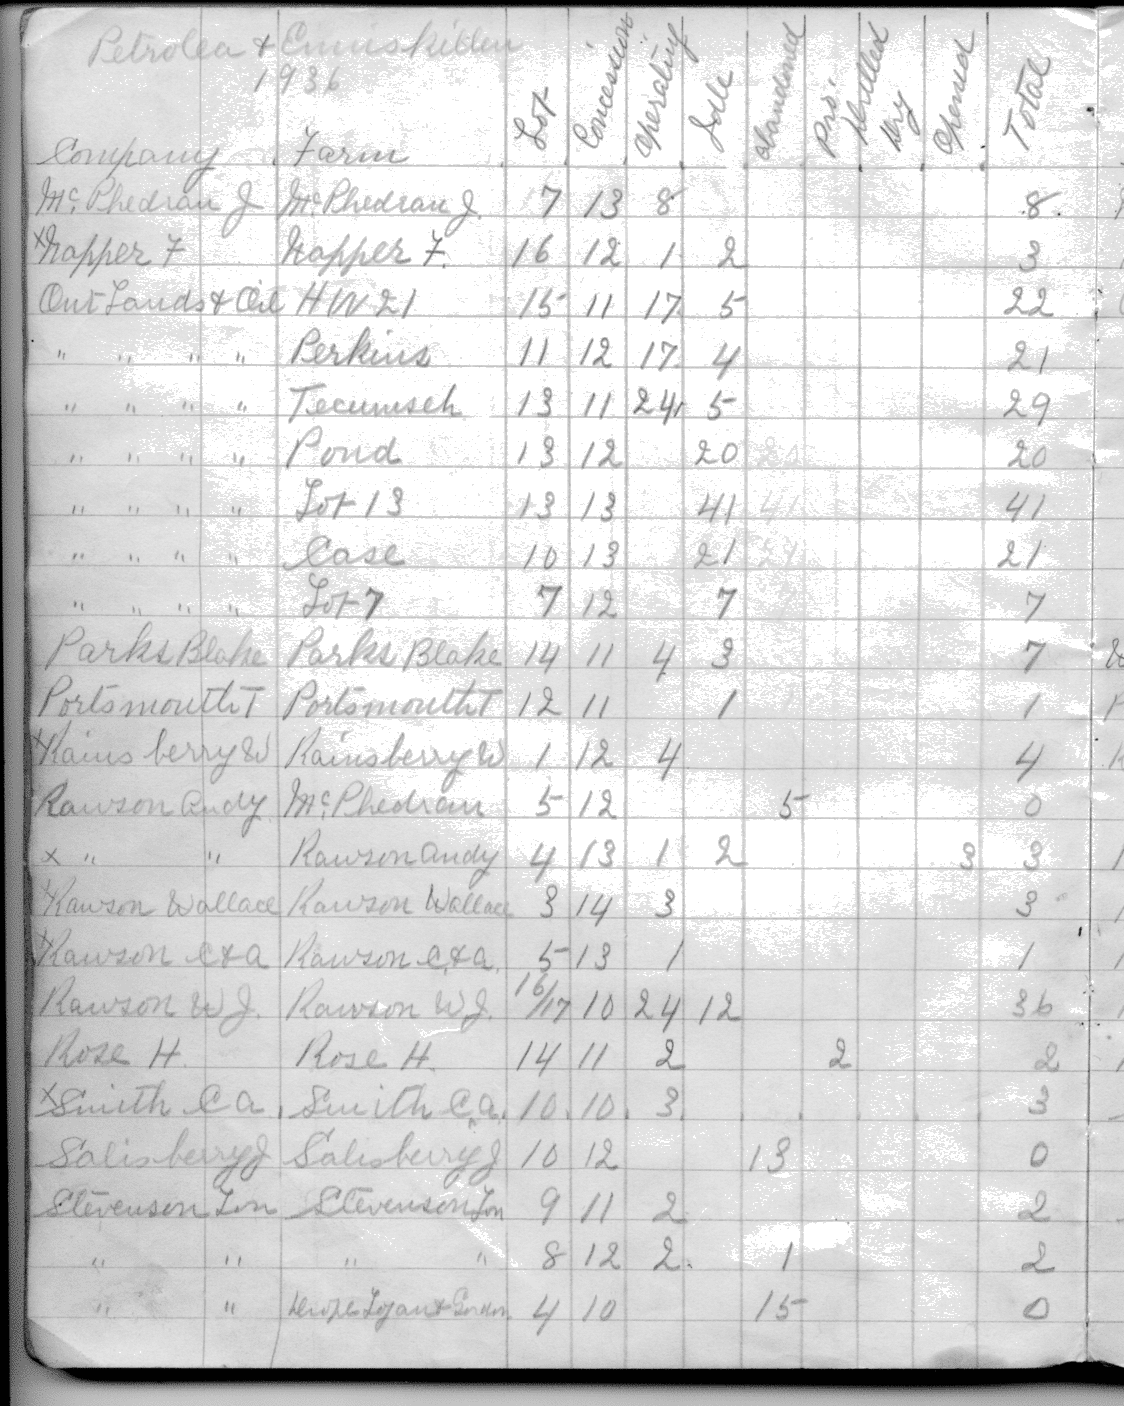 Petrolea & Enniskillen
1936
Company Farm Lot Concession Operating Idle Abandoned Pro. Drilled Dry Opened Total
McPhedran J McPhedran J. 7 13 8 8
x Napper F Napper F. 16 12 1 2 3
Ont Lands & Oil HW 21 15 11 17 5 22
" " " " Perkins 11 12 17 4 21
" " " " Tecumseh 13 11 24 5 29
" " " " Pond 13 12 20 20 20
" " " " Lot 13 13 13 41 41 41
" " " " Case 10 13 21 21 21
" " " " Lot 7 7 12 7 7
Parks Blake Parks Blake 14 11 4 3 7
Portsmouth T Portsmouth T 12 11 1 1
x Rainsberry W Rainsberry W 1 12 4 4
Rawson Andy McPhedran 5 12 5 0
x " " Rawson Andy 4 13 1 2 3 3
x Rawson Wallace Rawson Wallace 3 14 3 3
x Rawson C & A Rawson C & A. 5 13 1 1
Rawson W J. Rawson W J. 16/17 10 24 12 36
Rose H. Rose H. 14 11 2 2 2
x Smith C A Smith C A. 10 10 3 3
Salisberry J Salisberry J 10 12 13 0
Stevenson Lon Stevenson Lon 9 11 2 2
" " " " 8 12 2 1 2
" " Logan & Gordon 4 10 15 0